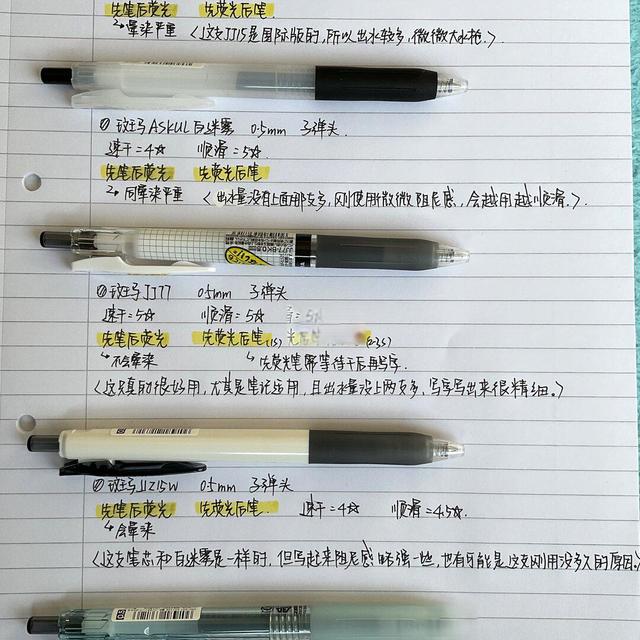 先笔后荧光 先荧光后笔
↳ 晕染严重 〈这支JJ15是国际版的,所以出水较多,微微大水枪.〉
① 斑马ASKUL白迷雾 0.5mm 子弹头.
速干=4☆ 顺滑=5☆
先笔后荧光 先荧光后笔
↳ 同晕染严重 〈出水量没有上面那支多,刚使用微微阻尼感,会越用越顺滑.〉
① 斑马JJ77 0.5mm 子弹头
速干=5☆ 顺滑=5☆
先笔后荧光 先荧光后笔(1s)
↳ 不会晕染 ↳ 先荧光笔要等待干后再写字.
〈这支真的很好用,尤其是笔记适用,且出水量没上两支多,写字写出来很精细.〉
① 斑马JJZ15W 0.5mm 子弹头
先笔后荧光 先荧光后笔. 速干=4☆ 顺滑=4.5☆.
↳ 会晕染
〈这支笔芯和白迷雾是一样的,但写起来阻尼感略强一些,也有可能是这支刚用没多久的原因.〉